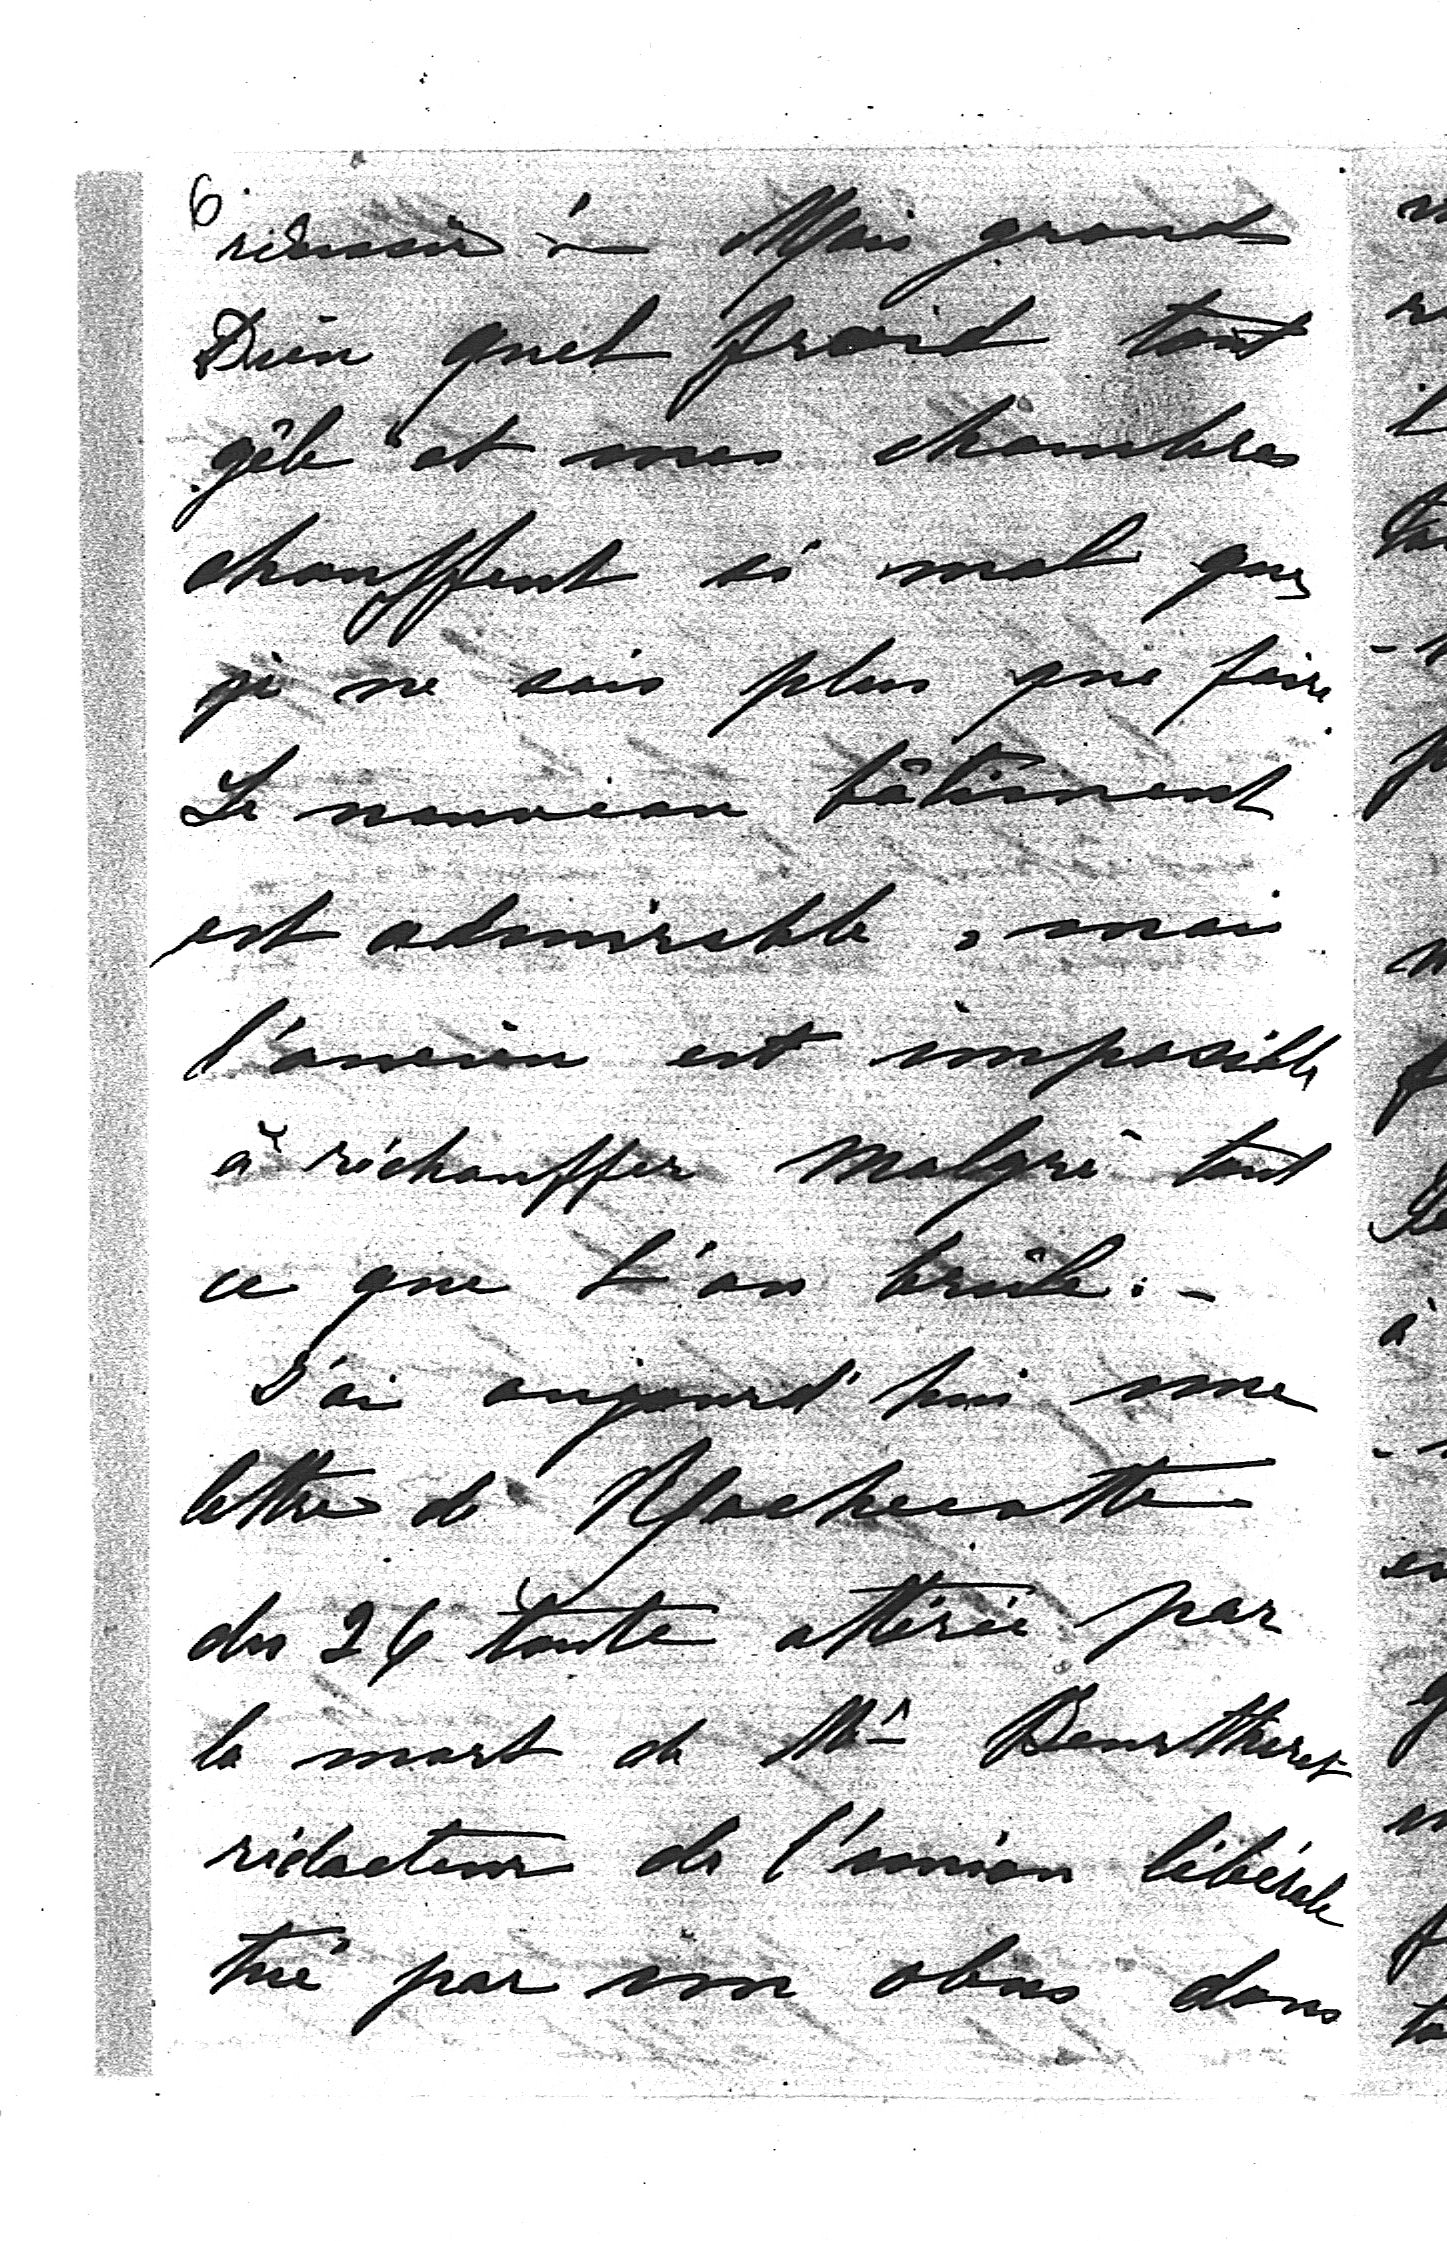 6
réussir à Mais grand
Dieu quel froid tout
gêle et mes chambres
chauffent si mal que
je ne sais plus que faire.
Le nouveau bâtiment
est admirable, mais
l'ancien est impossible
à réchauffer malgré tout
ce que l'on brûle. -
J'ai aujourd'hui une
lettre de Rochecotte
du 26 toute attérée par
la mort de Mr Beurtheret
rédacteur de l'union libérale
tué par un obus dans